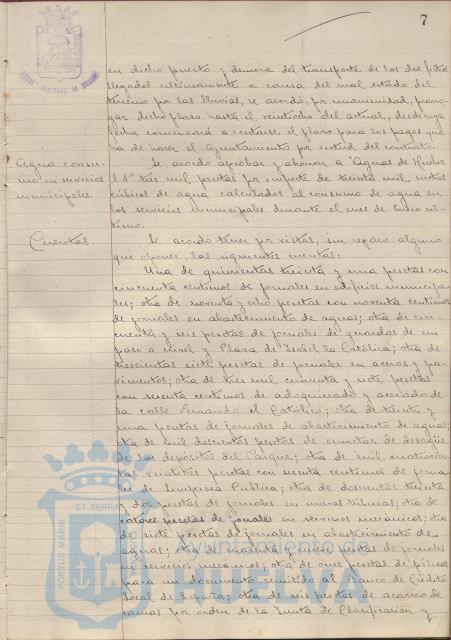 7
en dicho puerto y demora del transporte de los dos filtros
llegados ultimamente a causa del mal estado del
terreno por las lluvias, se acordó, por unanimidad, prorro-
gar dicho plazo hasta el veintiocho del actual, desde cuya
fecha comenzará a contarse el plazo para los pagos que
ha de hacer el Ayuntamiento por virtud del contrato.
Agua: consu-
mo en servicios
municipales.
Se acordó aprobar y abonar a "Aguas de Huelva
S.A" tres mil pesetas por importe de treinta mil metros
cúbicos de agua calculados al consumo de agua en
los servicios municipales durante el mes de Enero úl-
timo.
Cuentas.
Se acordó tener por vistas, sin reparo alguno
que oponer, las siguientes cuentas:
Una de quinientas treinta y una pesetas con
cincuenta centimos de jornales en edificios municipa-
les; otra de noventa y ocho pesetas con noventa centimos
de jornales en abastecimiento de aguas; otra de cin-
cuenta y seis pesetas de jornales de guardas de un
paso a nivel y Plaza de Isabel la Católica; otra de
trescientas siete pesetas de jornales en aceras y pa-
vimentos; otra de tres mil cuarenta y siete pesetas
con sesenta centimos de adoquinado y acerado de
la calle Fernando el Católico; otra de treinta y
una pesetas de jornales de abastecimiento de aguas;
otra de mil doscientas pesetas de cunetas de desagüe
de los depósitos del Parque; otra de mil cuatrocien-
tas veintitres pesetas con sesenta centimos de jorna-
les de Limpieza Publica; otra de doscientas treinta
y dos pesetas de jornales en nuevas tribunas; otra de
catorce pesetas de jornales en servicios mecánicos; otra
de siete pesetas de jornales en abastecimiento de
aguas; otra de y nueve pesetas de jornales
en servicios mecánicos; otra de once pesetas de pólizas
para un documento remitido al Banco de Crédito
Local de España; otra de seis pesetas de acarreo de
camas por orden de la Junta de Clasificación y
PORTUS MARIS
ET TERRAE
Ayuntamiento de
HUELVA